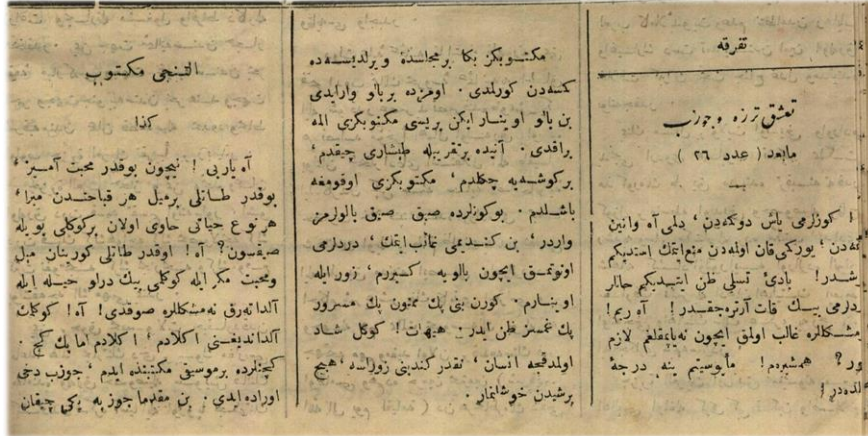 تفرقه
تعشق ترزه و جوزپ
مابعد ( عدد ٢٦ )
كوزلرمى ياش دوكمه‌دن ، دلمى آه وانين
‌دن ، يوركمى قان اولمه‌دن منع ايتمك استديكم
‌شدر ! بادئ تسلى ظن ايتديكم حاللر
دردمى بيك قات آرتره‌جقدر ! آه ربم !
مشكللره غالب اولمق ايچون نه‌ياپمقلغم لازم
ور ؟ همشيره‌م ! مأيوسيتم ينه درجهٔ
مكتوبكز بكا بر مجلسده ويرلديسه‌ده
كسه‌دن كورلدى . اومزده بر بالو وار ايدى
بن بالو اوينار ايكن بريسى مكتوبكزى المه
براقدى . آنيده بر تقريبله طيشارى چيقدم ،
بر كوشه‌يه چكلدم ، مكتوبكزى اوقومغه
باشلدم . بو كونلرده صيق صيق بالولرمز
واردر ، بن كنديمى غائب ايتمك ، دردلرمى
اونوتمق ايچون بالويه كيررم ، زور ايله
اوينارم . كورن بنى پك ممنون پك مسرور
پك غمسز ظن ايدر . هيهات ! كوكل شاد
اولمدقجه انسان ، نقدر كندينى زورلاسه ، هيچ
برشيدن خوشلنماز .
التنجى مكتوب
كذا
آه ياربى ! نيچون بوقدر محبت آميز ،
بوقدر طاتلى برميل هر قباحتدن مبرا ،
هر نوع حياتى حاوى اولان بر كوكلى بويله
صيقسون ؟ آه ! اوقدر طاتلى كورينان ميل
ومحبت مكر ايله كوكلمى بيك درلو حيله ايله
آلداته‌رق نه‌مشكللره صوقدى ! آه ! كوكلمك
آلدانديغنى اكلادم ، اكلادم اما پك كچ .
كچنلرده بر موسيقى مكتبنده ايدم ، جوزپ دخى
اوراده ايدى . بن مقدما جوزپه يكى چيقان